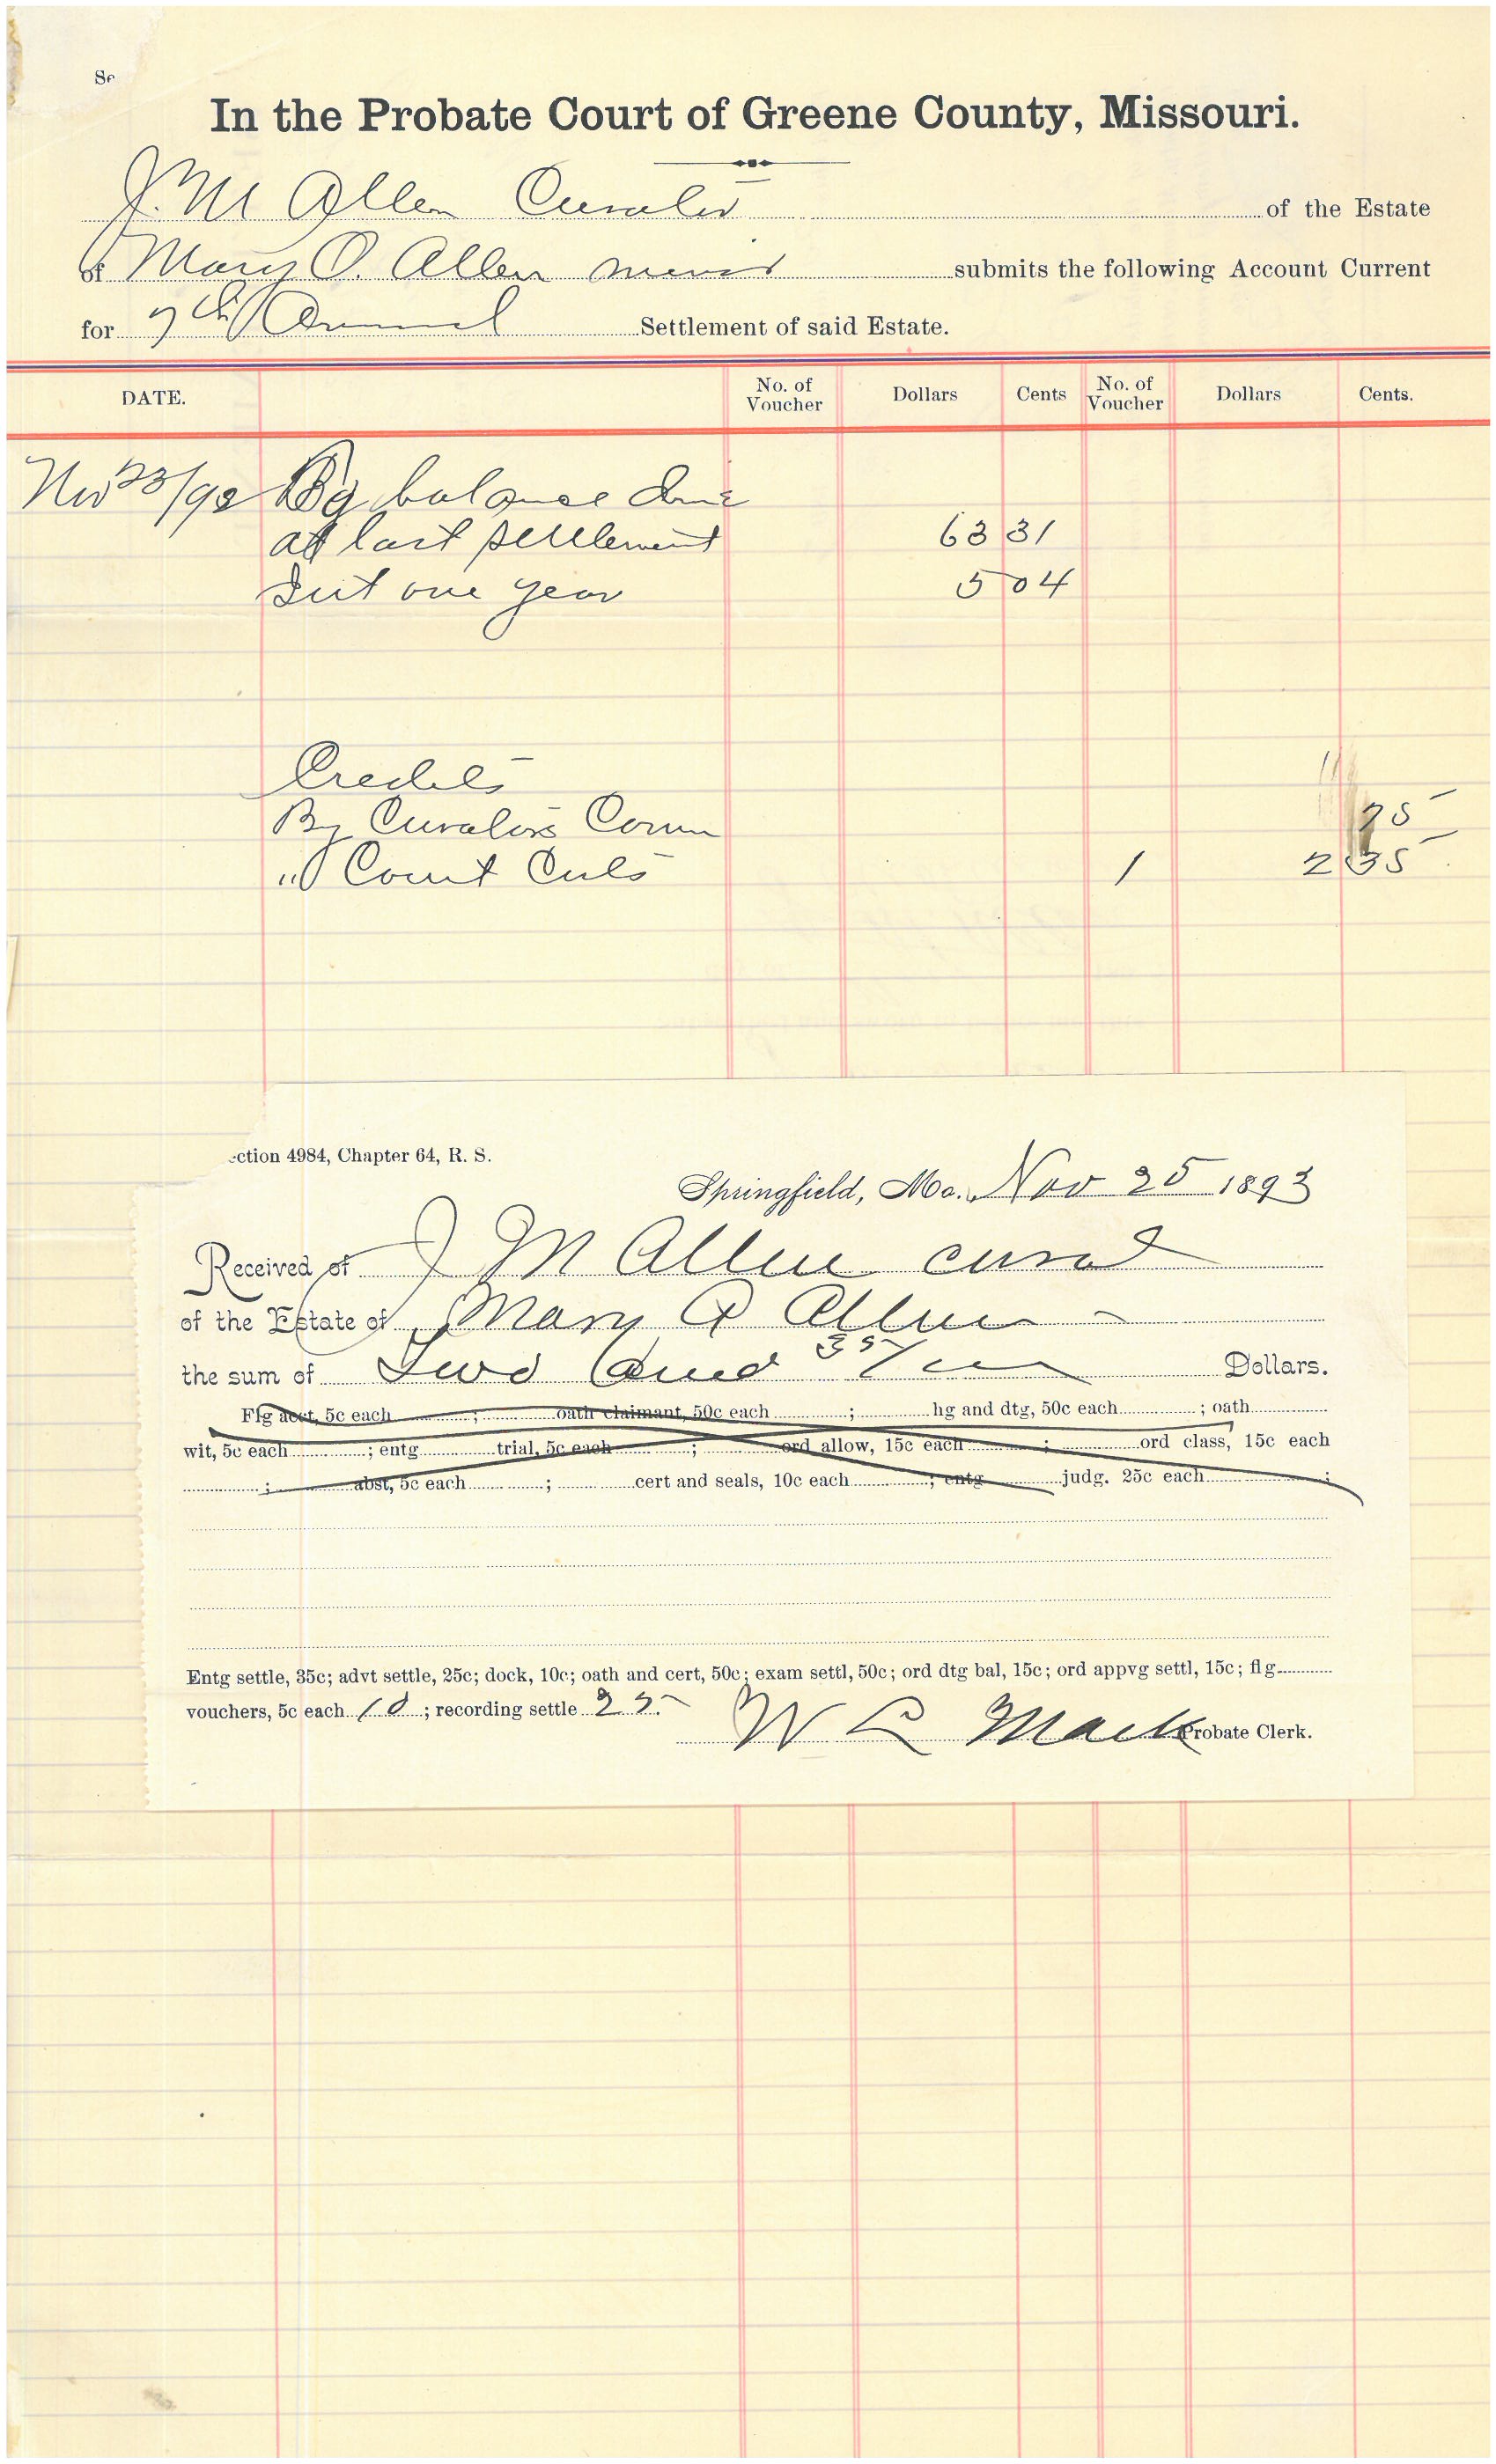 Se
In the Probate Court of Greene County, Missouri.
J. M Allen Curator of the Estate
of Mary O. Allen minor submits the following Account Current
for 7th Annual Settlement of said Estate.
DATE. No. of Voucher Dollars Cents No. of Voucher Dollars Cents.
Nov 23/92 By balance due
at last settlement 63 31
Int one year 5 04
Credits
By Curators Comm 25
" Court Costs 1 2 35
ction 4984, Chapter 64, R. S.
Springfield, Mo. Nov 25 1893
Received of J M Allen curat
of the Estate of Mary O Allen
the sum of Two and 35/ Dollars.
Flg acct, 5c each ; oath claimant, 50c each ; hg and dtg, 50c each ; oath
wit, 5c each ; entg trial, 5c each ; ord allow, 15c each ; ord class, 15c each
; abst, 5c each ; cert and seals, 10c each ; entg judg. 25c each ;
Entg settle, 35c; advt settle, 25c; dock, 10c; oath and cert, 50c; exam settl, 50c; ord dtg bal, 15c; ord appvg settl, 15c; flg
vouchers, 5c each 10 ; recording settle 25
W L Mack Probate Clerk.